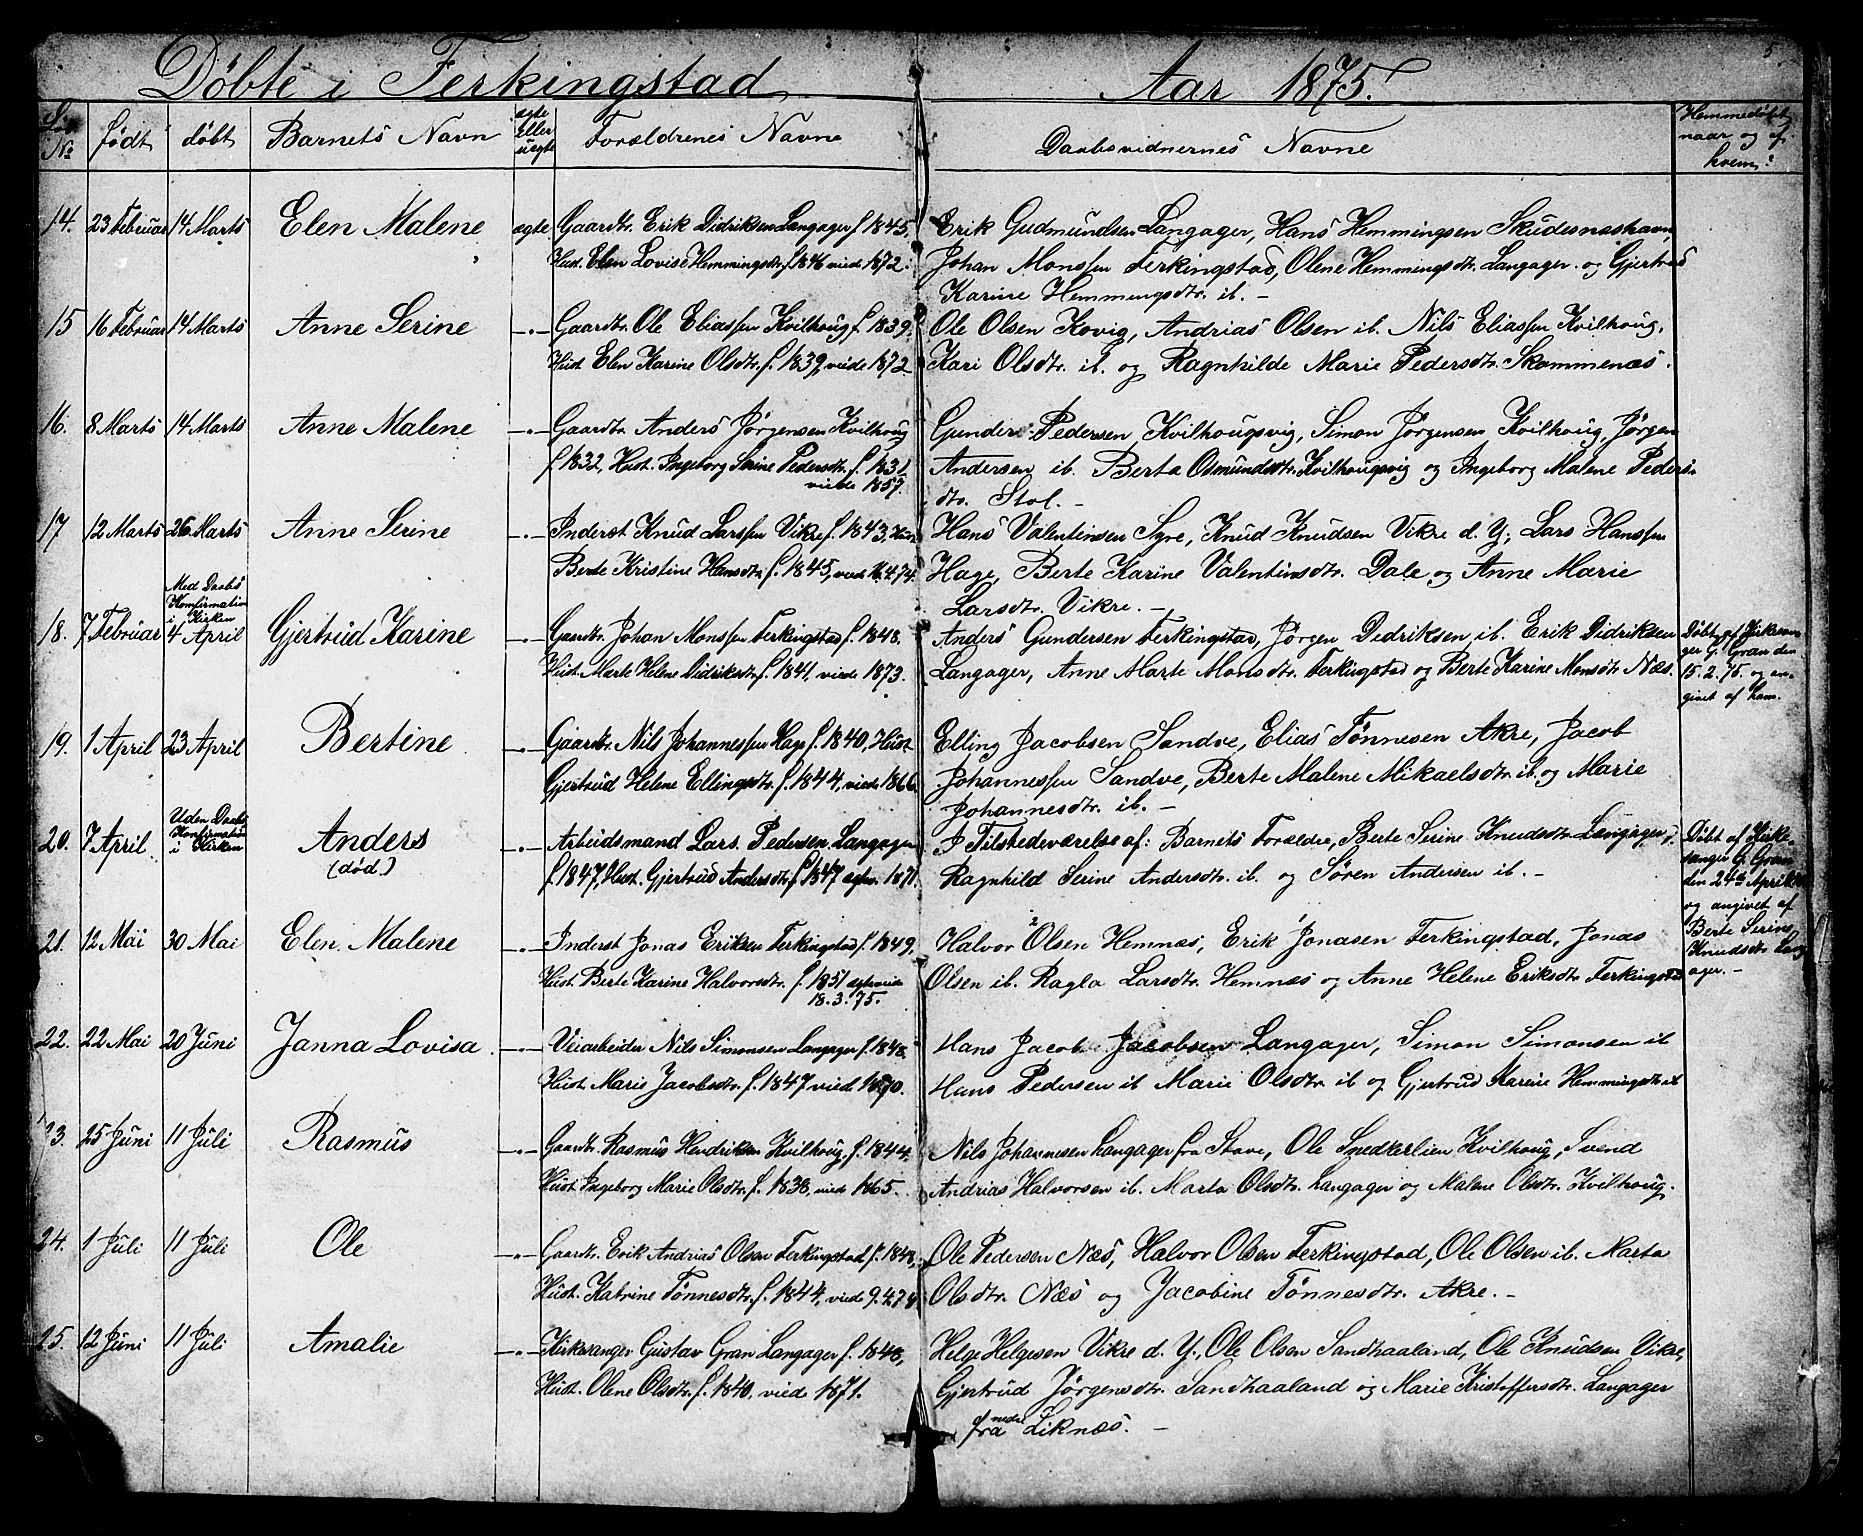 Døbte i Ferkingstad Aar 1875.
5
Lø. No | født | døbt | Barnets Navn | ægte eller uægte | Forældrenes Navne | Daabsvidnernes Navne | Hjemmedøbt naar og af hvem?
14. 23 Februar 14 Marts Elen Malene ægte Gaardbr. Erik Didriksen Langager f. 1845. Erik Gudmundsen Langager, Hans Hemmingsen Skudesneshavn,
Hust. Elen Lovise Hemmingsdtr. f. 1846 viede 1872. Johan Monssen Ferkingstad, Olene Hemmingsdtr. Langager og Gjertrud
Karine Hemmingsdtr. ib. –
15 16 Februar 14 Marts Anne Serine –"– Gaardbr. Ole Eliassen Kvilhoug f. 1839. Ole Olsen Kovig, Andrias Olsen ib. Nils Eliassen Kvilhoug,
Hust. Elen Karine Olsdtr. f. 1839, viede 1872. Kari Olsdtr. ib. og Ragnhilde Marie Pedersdtr. Skammenæs.
16. 8 Marts 14 Marts Anne Malene –"– Gaardbr. Anders Jørgensen Kvilhoug Gunder Pedersen Kvilhougsvig, Simon Jørgensen Kvilhoug, Jørgen
f. 1832, Hust. Ingeborg Serine Pedersdtr. f. 1831. Andersen ib. Berta Osmundsdtr. Kvilhougsvig og Ingeborg Malene Peders-
viede 1857. dtr. Stol. –
17 12 Marts 26 Marts Anne Serine –"– Inderst Knud Larssen Vikre f. 1843, Hust. Hans Valentinsen Syre, Knud Knudsen Vikre d. Y., Lars Hanssen
Berte Kristine Hansdtr. f. 1845, viede 16.4.74. Hage, Berte Karine Valentinsdtr. Dale og Anne Marie
Larsdtr. Vikre. –
Med Daabs Konfirmation i Kirken
18. 7 Februar 4 April Gjertrud Karine –"– Gaardbr. Johan Monssen Ferkingstad f. 1848. Anders Gundersen Ferkingstad, Jørgen Didriksen ib. Erik Didriksen
Hust. Marte Helene Didriksdtr. f. 1841, viede 1873. Langager, Anne Marte Monsdtr. Ferkingstad og Berte Karine Monsdtr. Næs.
Døbt af Kirkesan-
ger G. Gran den
15.2.75. og an-
givet af ham.
19. 1 April 23 April Bertine –"– Gaardbr. Nils Johannessen Hage f. 1840, Hust. Elling Jacobsen Sandve, Elias Tønnesen Akre, Jacob
Gjertrud Helene Ellingsdtr. f. 1844, viede 1866. Johannessen Sandve, Berte Malene Mikaelsdtr. ib. og Marie
Johannesdtr. ib. –
Uden Daabs Konfirmation i Kirken
20. 7 April Anders –"– Arbeidsmand Lars Pedersen Langager I Tilstedeværelse af: Barnets Forældre, Berte Serine Knudsdtr. Langager,
(død) f. 1847, Hust. Gjertrud Andersdtr. f. 1847 1871. Ragnhild Serine Andersdtr. ib. og Søren Andersen ib. –
Døbt af Kirke-
sanger G. Gran
den 24de April
og angivet af
Berte Serine
Knudsdtr. Lang-
ager. –
21. 12 Mai 30 Mai Elen Malene –"– Inderst Jonas Eriksen Ferkingstad f. 1849, Halvor Olsen Hemnæs, Erik Jonasen Ferkingstad, Jonas
Hust. Berte Karine Halvorsdtr. f. 1851 Olsen ib. Ragla Larsdtr. Hemnæs og Anne Helene Eriksdtr. Ferkingstad
18.3.75.
22. 22 Mai 20 Juni Janna Lovisa –"– Veiarbeider Nils Simonsen Langager f. 1848. Hans Jacob Jacobsen Langager, Simon Simonsen ib
Hust. Marie Jacobsdtr. f. 1847 viede 1870. Hans Pedersen ib Marie Olsdtr. ib og Gjertrud Karine Hemmingsdtr. ib
23. 25 Juni 11 Juli Rasmus –"– Gaardbr. Rasmus Hendriksen Kvilhoug f. 1844. Nils Johannesen Langager fra Stave, Ole Snedkerlien Kvilhoug, Svend
Hust. Ingeborg Marie Olsdtr. f. 1838, viede 1865. Andrias Halvorsen ib. Marta Olsdtr. Langager og Malene Olsdtr. Kvilhoug.
24. 1 Juli 11 Juli Ole –"– Gaardbr. Erik Andrias Olsen Ferkingstad f. 1848, Ole Pedersen Næs, Halvor Olsen Ferkingstad, Ole Olsen ib. Marta
Hust. Katrine Tønnesdtr. f. 1844, viede 9.4.74 Olsdtr. Næs og Jacobine Tønnesdtr. Akre. –
25. 12 Juni 11 Juli Amalie –"– Kirkesanger Gustav Gran Langager f. 1848, Helge Helgesen Vikre d. Y., Ole Olsen Sandhaaland, Ole Knudsen Vikre,
Hust. Olene Olsdtr. f. 1840, viede 1871. Gjertrud Jørgensdtr. Sandhaaland og Marie Kristoffersdtr. Langager
fra nedre Liknæs. –